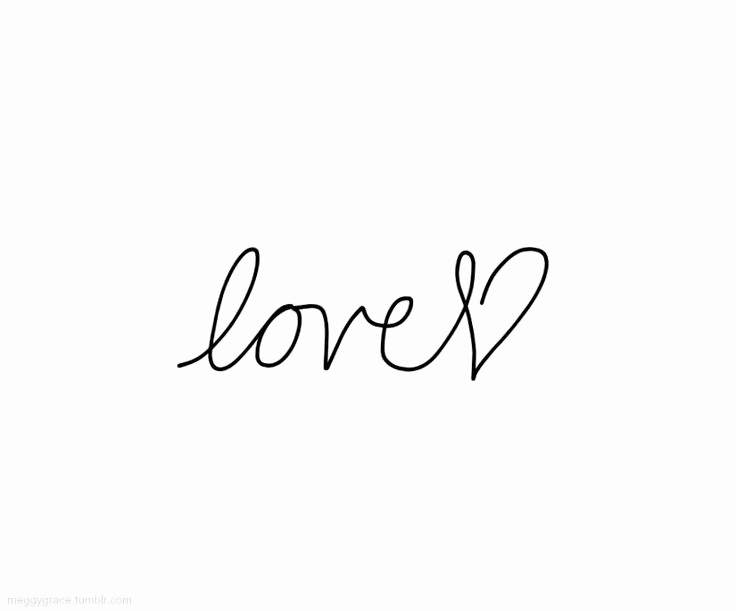 love
meggygrace.tumblr.com